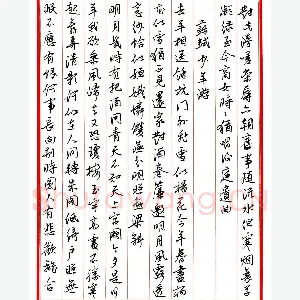 對此漫嗟榮辱六朝舊事隨流水但寒煙衰草
凝綠至今商女時時猶唱後庭遺曲
蘇軾少年游
去年相送餘杭門外飛雪似楊花今年春盡楊
花似雪猶不見還家對酒捲簾邀明月風露透
窗紗恰似姮娥憐雙燕分明照畫梁斜
明月幾時有把酒問青天不知天上宮闕今夕是何
年我欲乘風歸去又恐瓊樓玉宇高處不勝寒
起舞弄清影何似在人間轉朱閣低綺戶照無
眠不應有恨何事長向別時圓人有悲歡離合